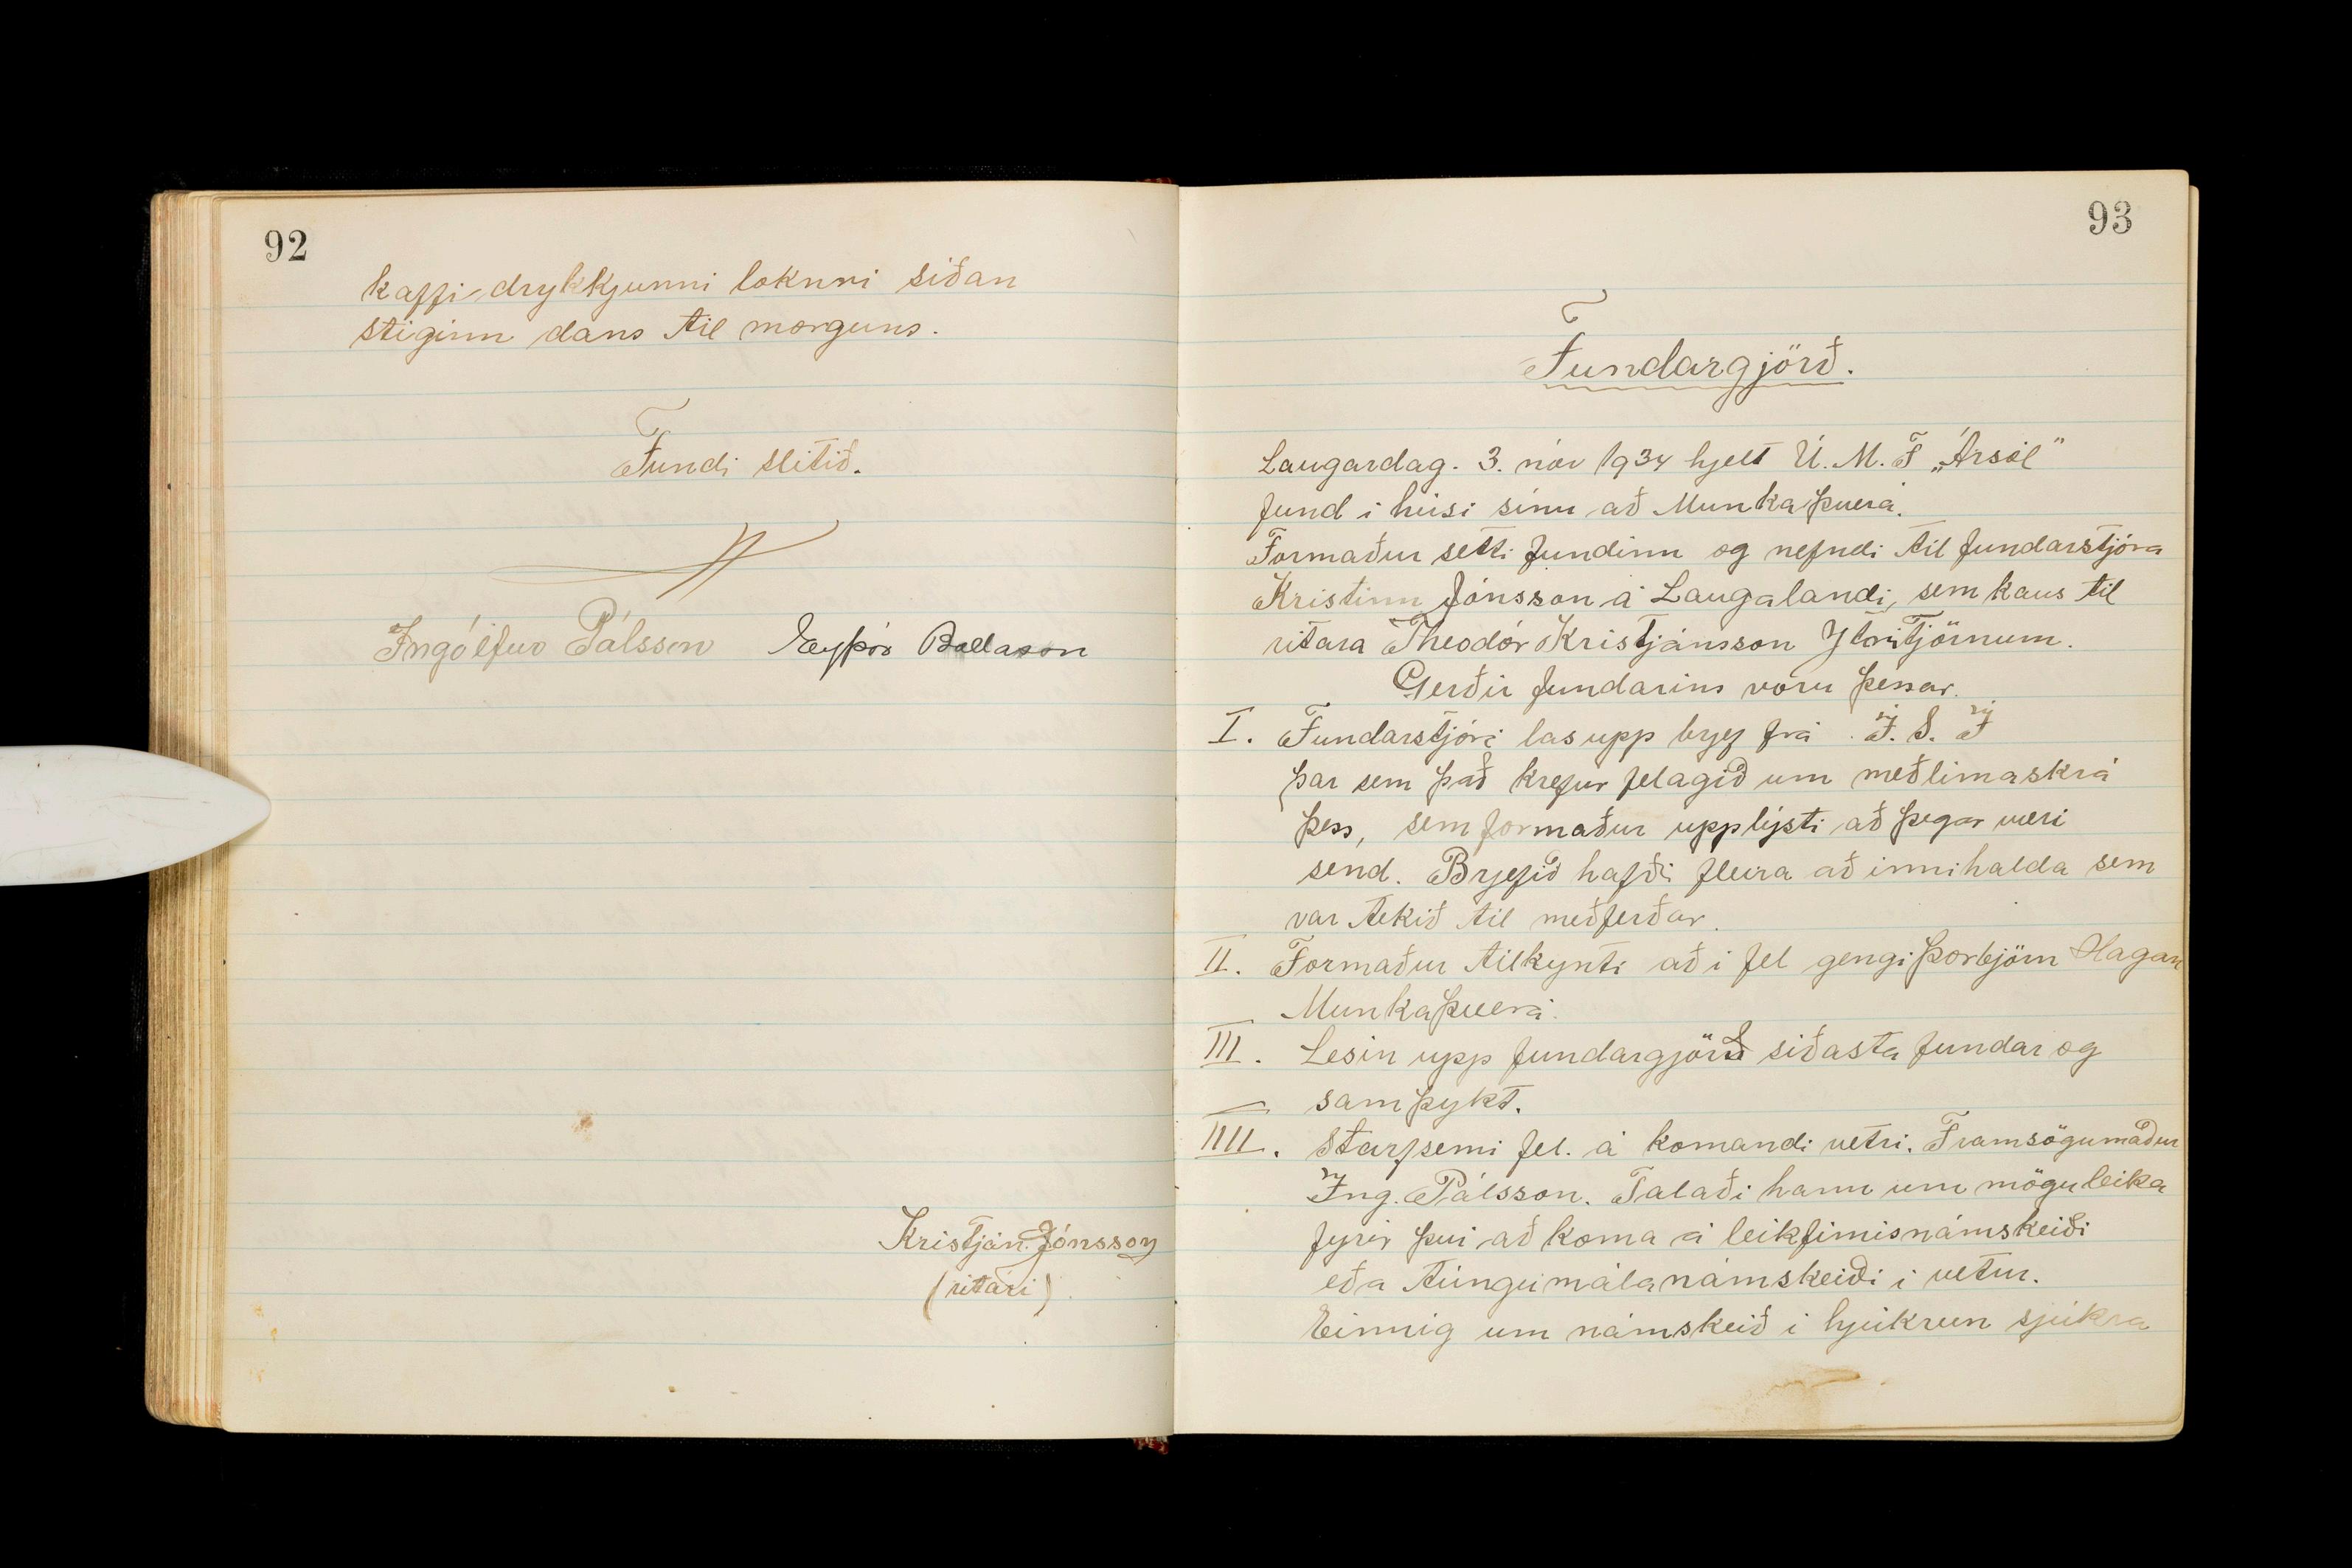 92
kaffi-drykkjunni loknri síðan
stiginn dans til morguns.
Fundi slitið.
Ingólfur Pálsson Eyþór Bollason
Kristján Jónsson
(ritari)
93
Fundargjörð.
Laugardag. 3. nóv 1934 hjelt U. M. F „Ársól"
fund i húsi sínu að Munkaþuerá.
Formaður setti fundinn og nefndi til fundarstjóra
Kristinn Jónsson á Laugalandi, sem kaus til
ritara Theodór Kristjánsson Ytritjörnum.
Gerðir fundarins voru þessar.
I. Fundarstjóri las upp brjef frá Í. S. Í
þar sem það krefur felagið um meðlimaskrá
þess, sem formaður upplýsti að þegar væri
send. Brjefið hafði fleira að innihalda sem
var tekið til meðferðar.
II. Formaður tilkynti að i fel gengi Þorbjörn Hagan
Munkaþuerá.
III. Lesin upp fundargjörð siðasta fundar og
samþykt.
IIII. Starfsemi fel. á komandi vetri. Framsögumaður
Ing. Pálsson. Talaði hann um möguleika
fyrir þui að koma á leikfimisnámskeiði
eða tungumálanámskeiði i vetur.
Einnig um námskeið i hjúkrun sjúkra